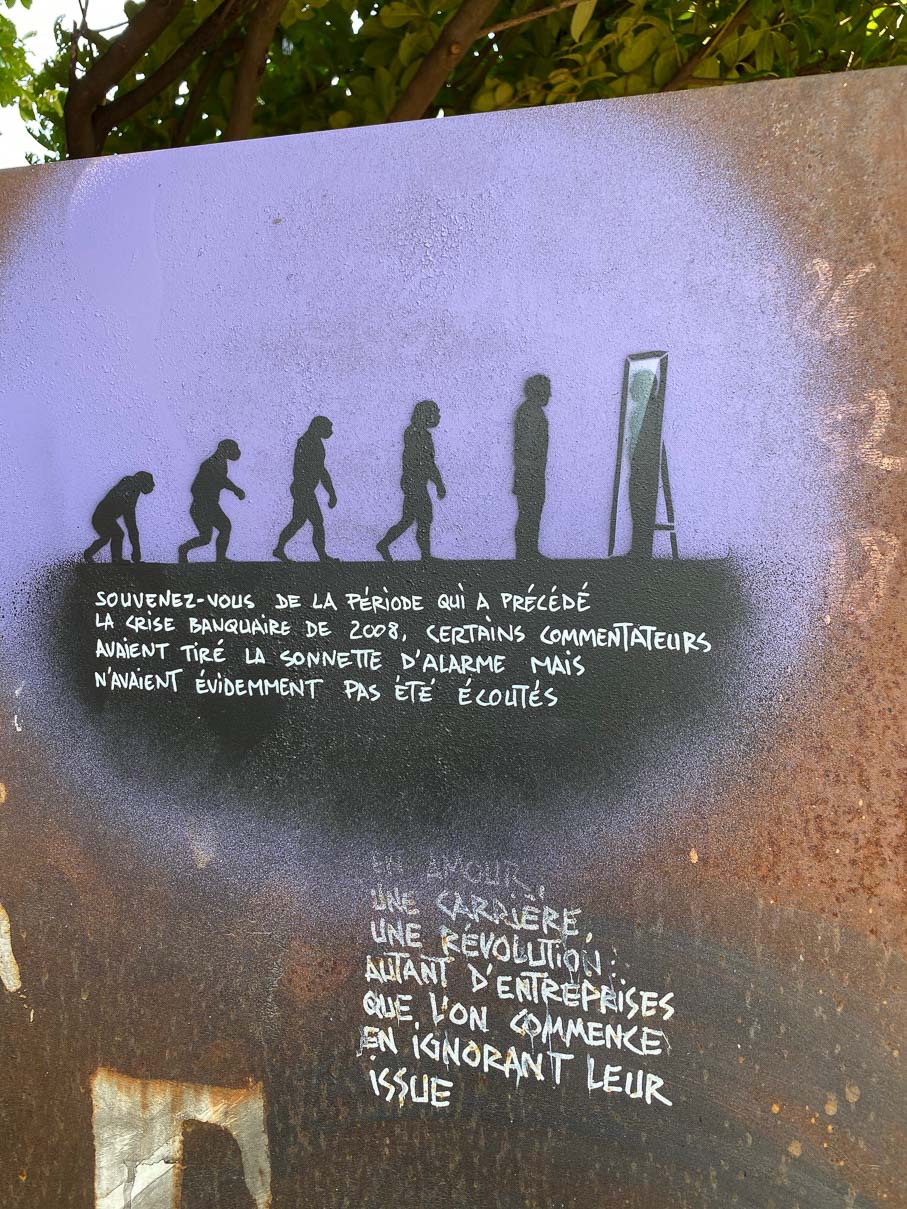 SOUVENEZ-VOUS DE LA PÉRIODE QUI A PRÉCÉDÉ
LA CRISE BANQUAIRE DE 2008, CERTAINS COMMENTATEURS
AVAIENT TIRÉ LA SONNETTE D'ALARME MAIS
N'AVAIENT ÉVIDEMMENT PAS ÉTÉ ÉCOUTÉS
EN AMOUR,
UNE CARRIÈRE,
UNE RÉVOLUTION:
AUTANT D'ENTREPRISES
QUE L'ON COMMENCE
EN IGNORANT LEUR
ISSUE